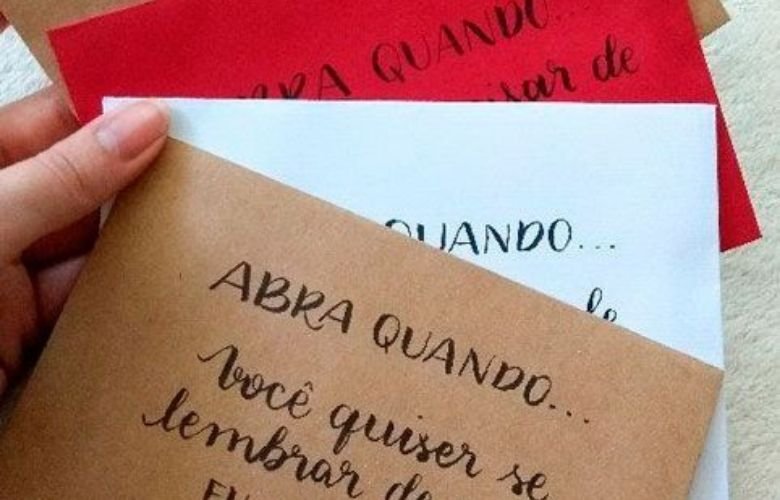 ABRA QUANDO...
de
QUANDO...
ABRA QUANDO...
você quiser se
lembrar de